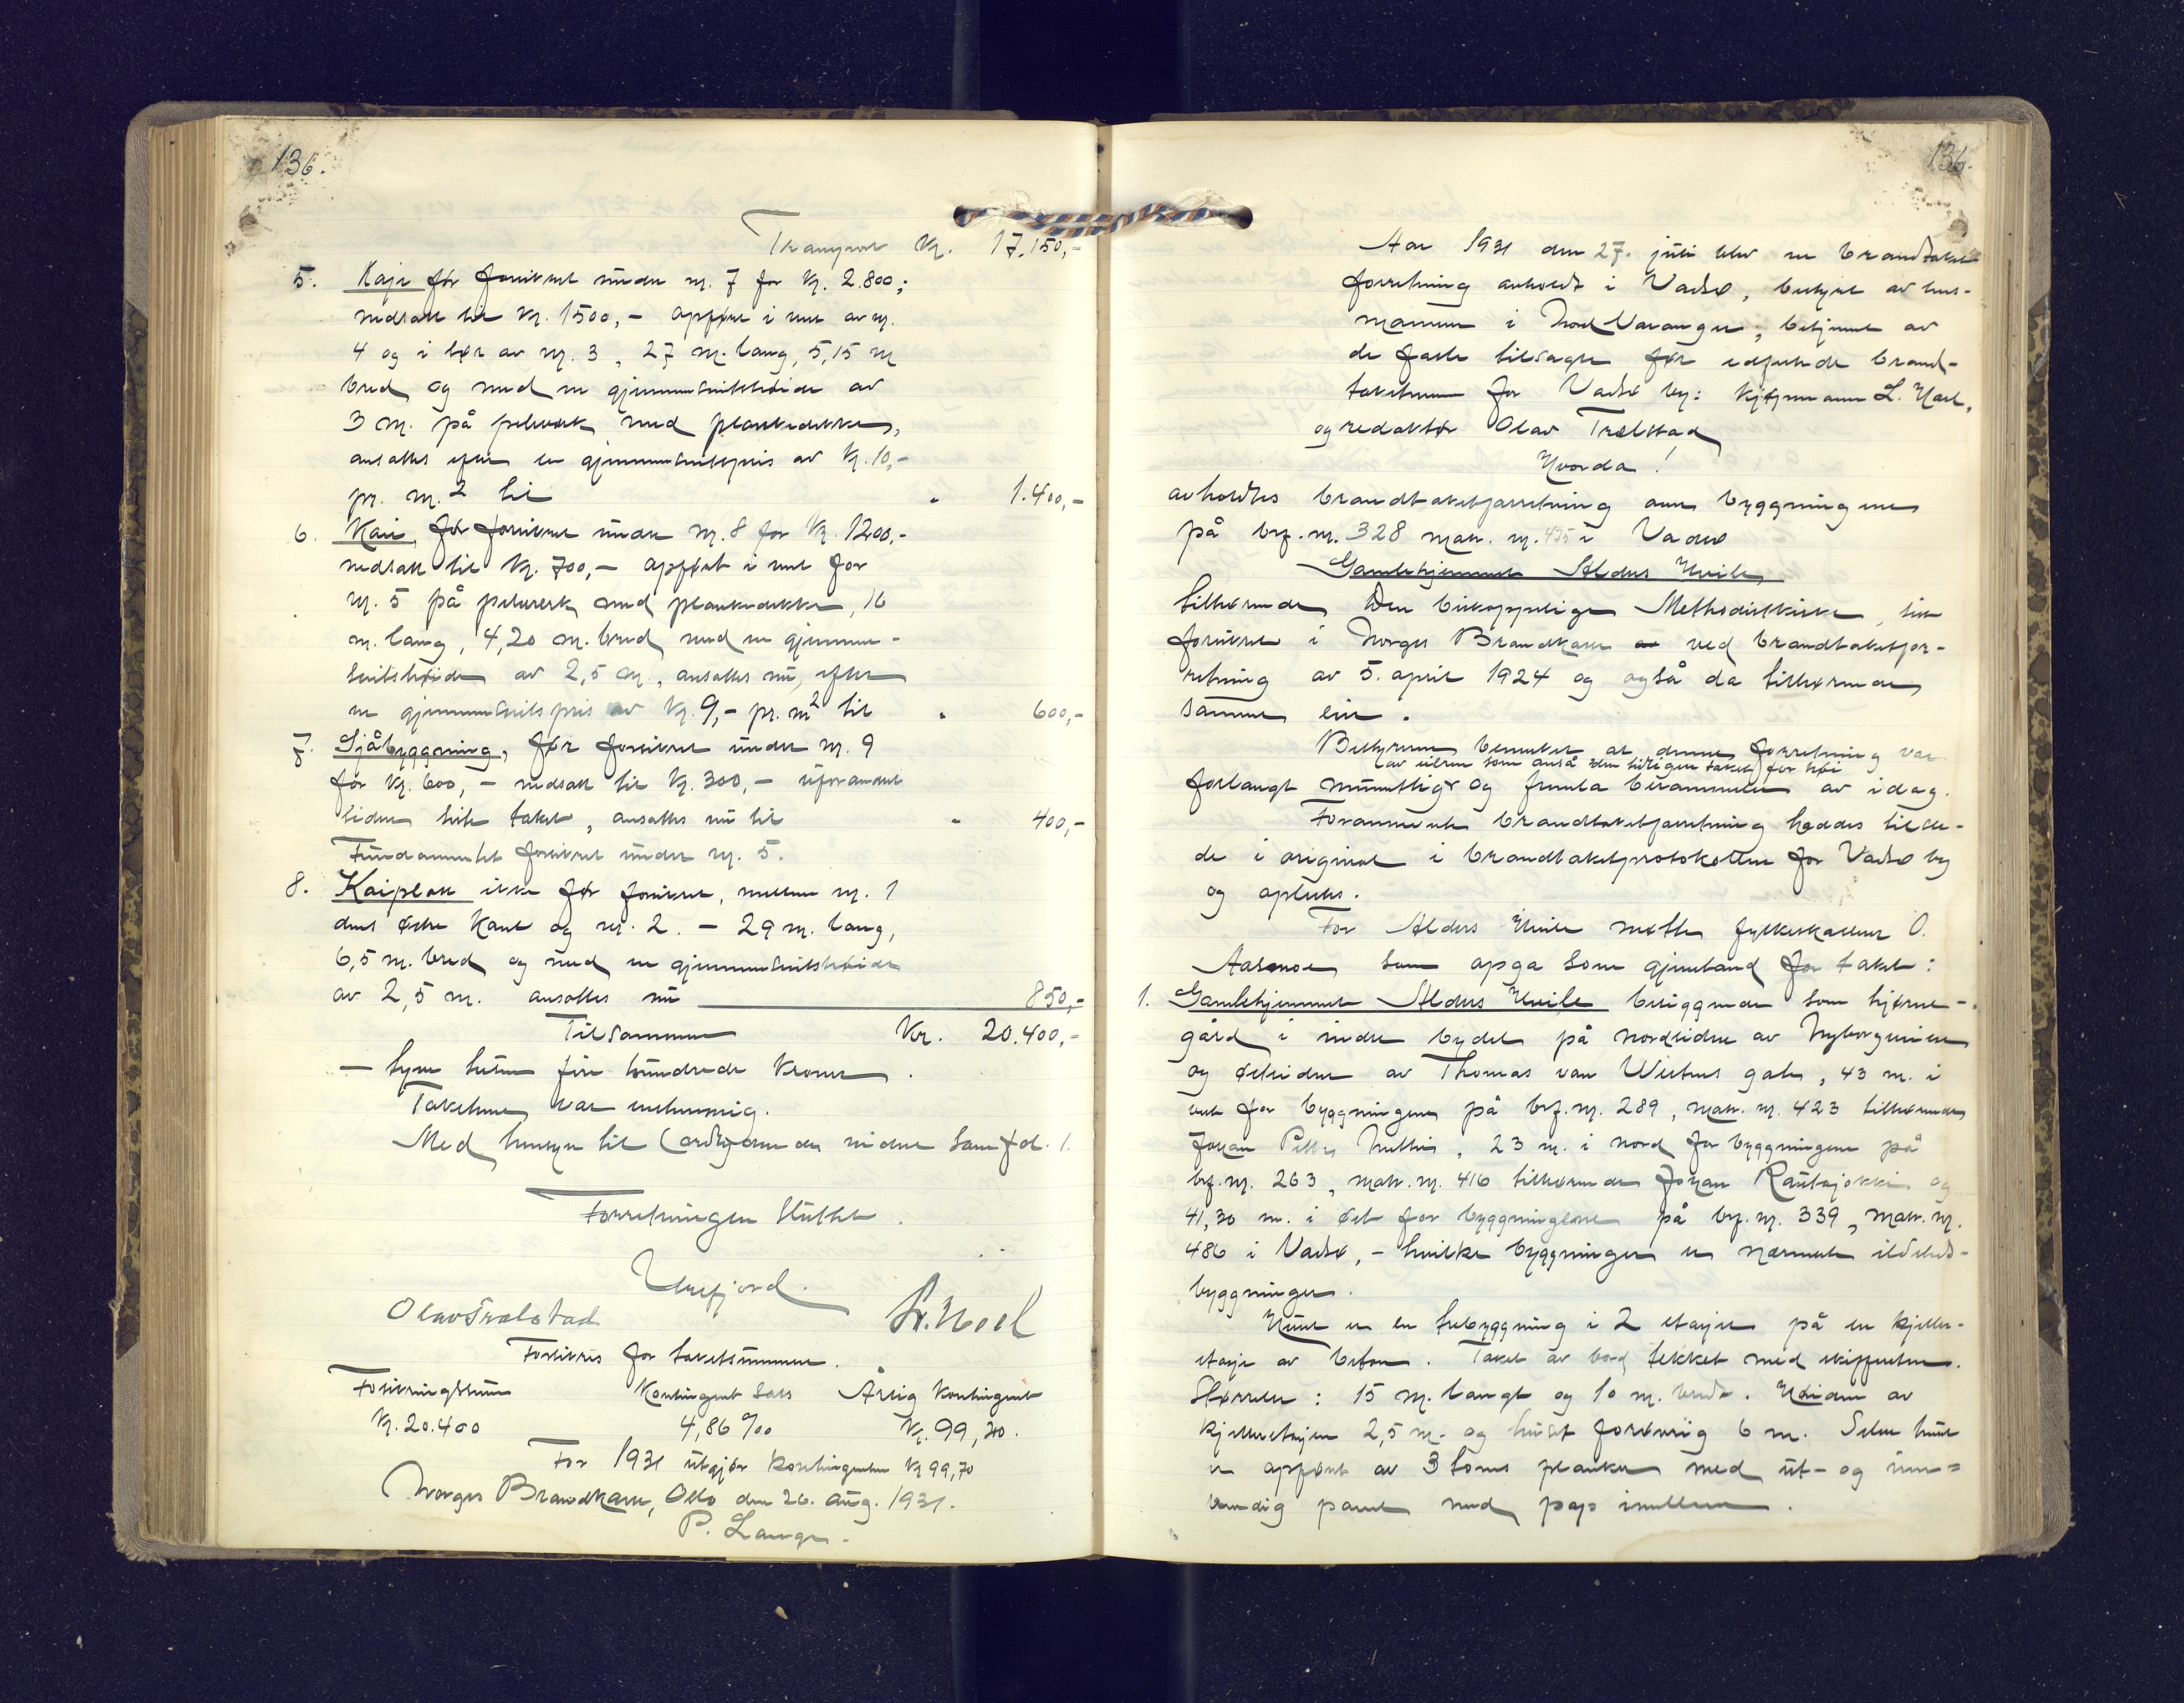 136.
Transport Kr. 17.150,-
5. Kaje før forsikret under nr. 7 for kr. 2.800;
nedsatt til kr. 1500,- opført i vest av nr.
4 og i bør av nr. 3, 27 m. lang, 5,15 m
bred og med en gjennemsnitshøide av
3 m. på peleverk med plankedekke,
ansattes efter en gjennemsnitspris av kr. 10,-
pr. m.² til " 1.400,-
6. Kaie, før forsikret under nr. 8 for kr. 1200,-
nedsatt til kr. 700,- opført i vest for
nr. 5 på peleverk med plankedekke, 16
m. lang, 4,20 m. bred med en gjennem-
snitshøide av 2,5 m., ansattes nu, efter
en gjennemsnitspris av kr. 9,- pr. m² til " 600,-
7. Sjåbyggning, før forsikret under nr. 9
for kr. 600,- nedsatt til kr. 300,- uforandret
siden siste takst, ansattes nu til " 400,-
Fundamentet forsikret under nr. 5.
8. Kaiplatt ikke før forsikret, mellem nr. 1
dens østre kant og nr. 2. - 29 m. lang,
6,5 m. bred og med en gjennemsnitshøide
av 2,5 m. ansattes nu 850,-
Tilsammen Kr. 20.400,-
- tyve tusen fire hundrede kroner.
Taksten var enstemmig.
Med hensyn til
Forretningen sluttet.
Olav Trælstad L. Noel
Forsikres for takstsummen.
Forsikringssum Kontingent sats Årlig kontingent
Kr. 20.400 4,86 ‰ Kr. 99,20.
For 1931 utgjør kontingenten kr 99,70
Norges Brandkasse, Oslo den 26. aug. 1931.
P. Lange.
136.
Aar 1931 den 27. juli blev en brandtakst
forretning avholdt i Vadsø, bestyret av lens-
mannen i Nord Varanger, betjent av
de faste tilsagte for utførende brand-
takstmenn for Vadsø by: kjøpmann L. Noel,
og redaktør Olav Trælstad
Hvorda!
avholdtes brandtakstforretning over byggningene
på brf. nr. 328 matr. nr. 475 i Vadsø
Gamlehjemmet Alders Hvile
tilhørende Den biskoppelige Methodistkirke, sist
forsikret i Norges Brandkasse ved brandtakstfor-
retning av 5. april 1924 og også da tilhørende
samme eier.
Bestyreren bemerket at denne forretning var
av eieren som anså den tidligere takst for høi
forlangt mundtlig og straks berammet av idag.
Forannevnte brandtakstforretning haddes tilste-
de i original i brandtakstprotokollen for Vadsø by
og oplestes.
For Alders Hvile møtte fylkeskasserer O.
Aasmoe som opga som gjenstand for takst:
1. Gamlehjemmet Alders Hvile beliggende som hjørne-
gård i indre bydel på nordsiden av Nyborgveien
og østsiden av Thomas van Westens gate, 43 m. i
vest for byggningene på brf. nr. 289, matr. nr. 423 tilhørende
Johan Petter , 23 m. i nord for byggningene på
brf. nr. 263, matr. nr. 416 tilhørende Johan Rautajokki og
41,30 m. i øst for byggningene på brf. nr. 339, matr. nr.
486 i Vadsø, - hvilke byggninger er nærmeste ildsteds-
byggninger.
Huset er en trebyggning i 2 etasjer på en kjeller-
etasje av beton. Taket av bord tekket med skiffersten.
Størrelse: 15 m. langt og 10 m. bredt. Høiden av
kjelleretasjen 2,5 m. og huset forøvrig 6 m. Selve huset
er opført av 3 toms planker med ut- og inn-
vendig panel med papp imellem.